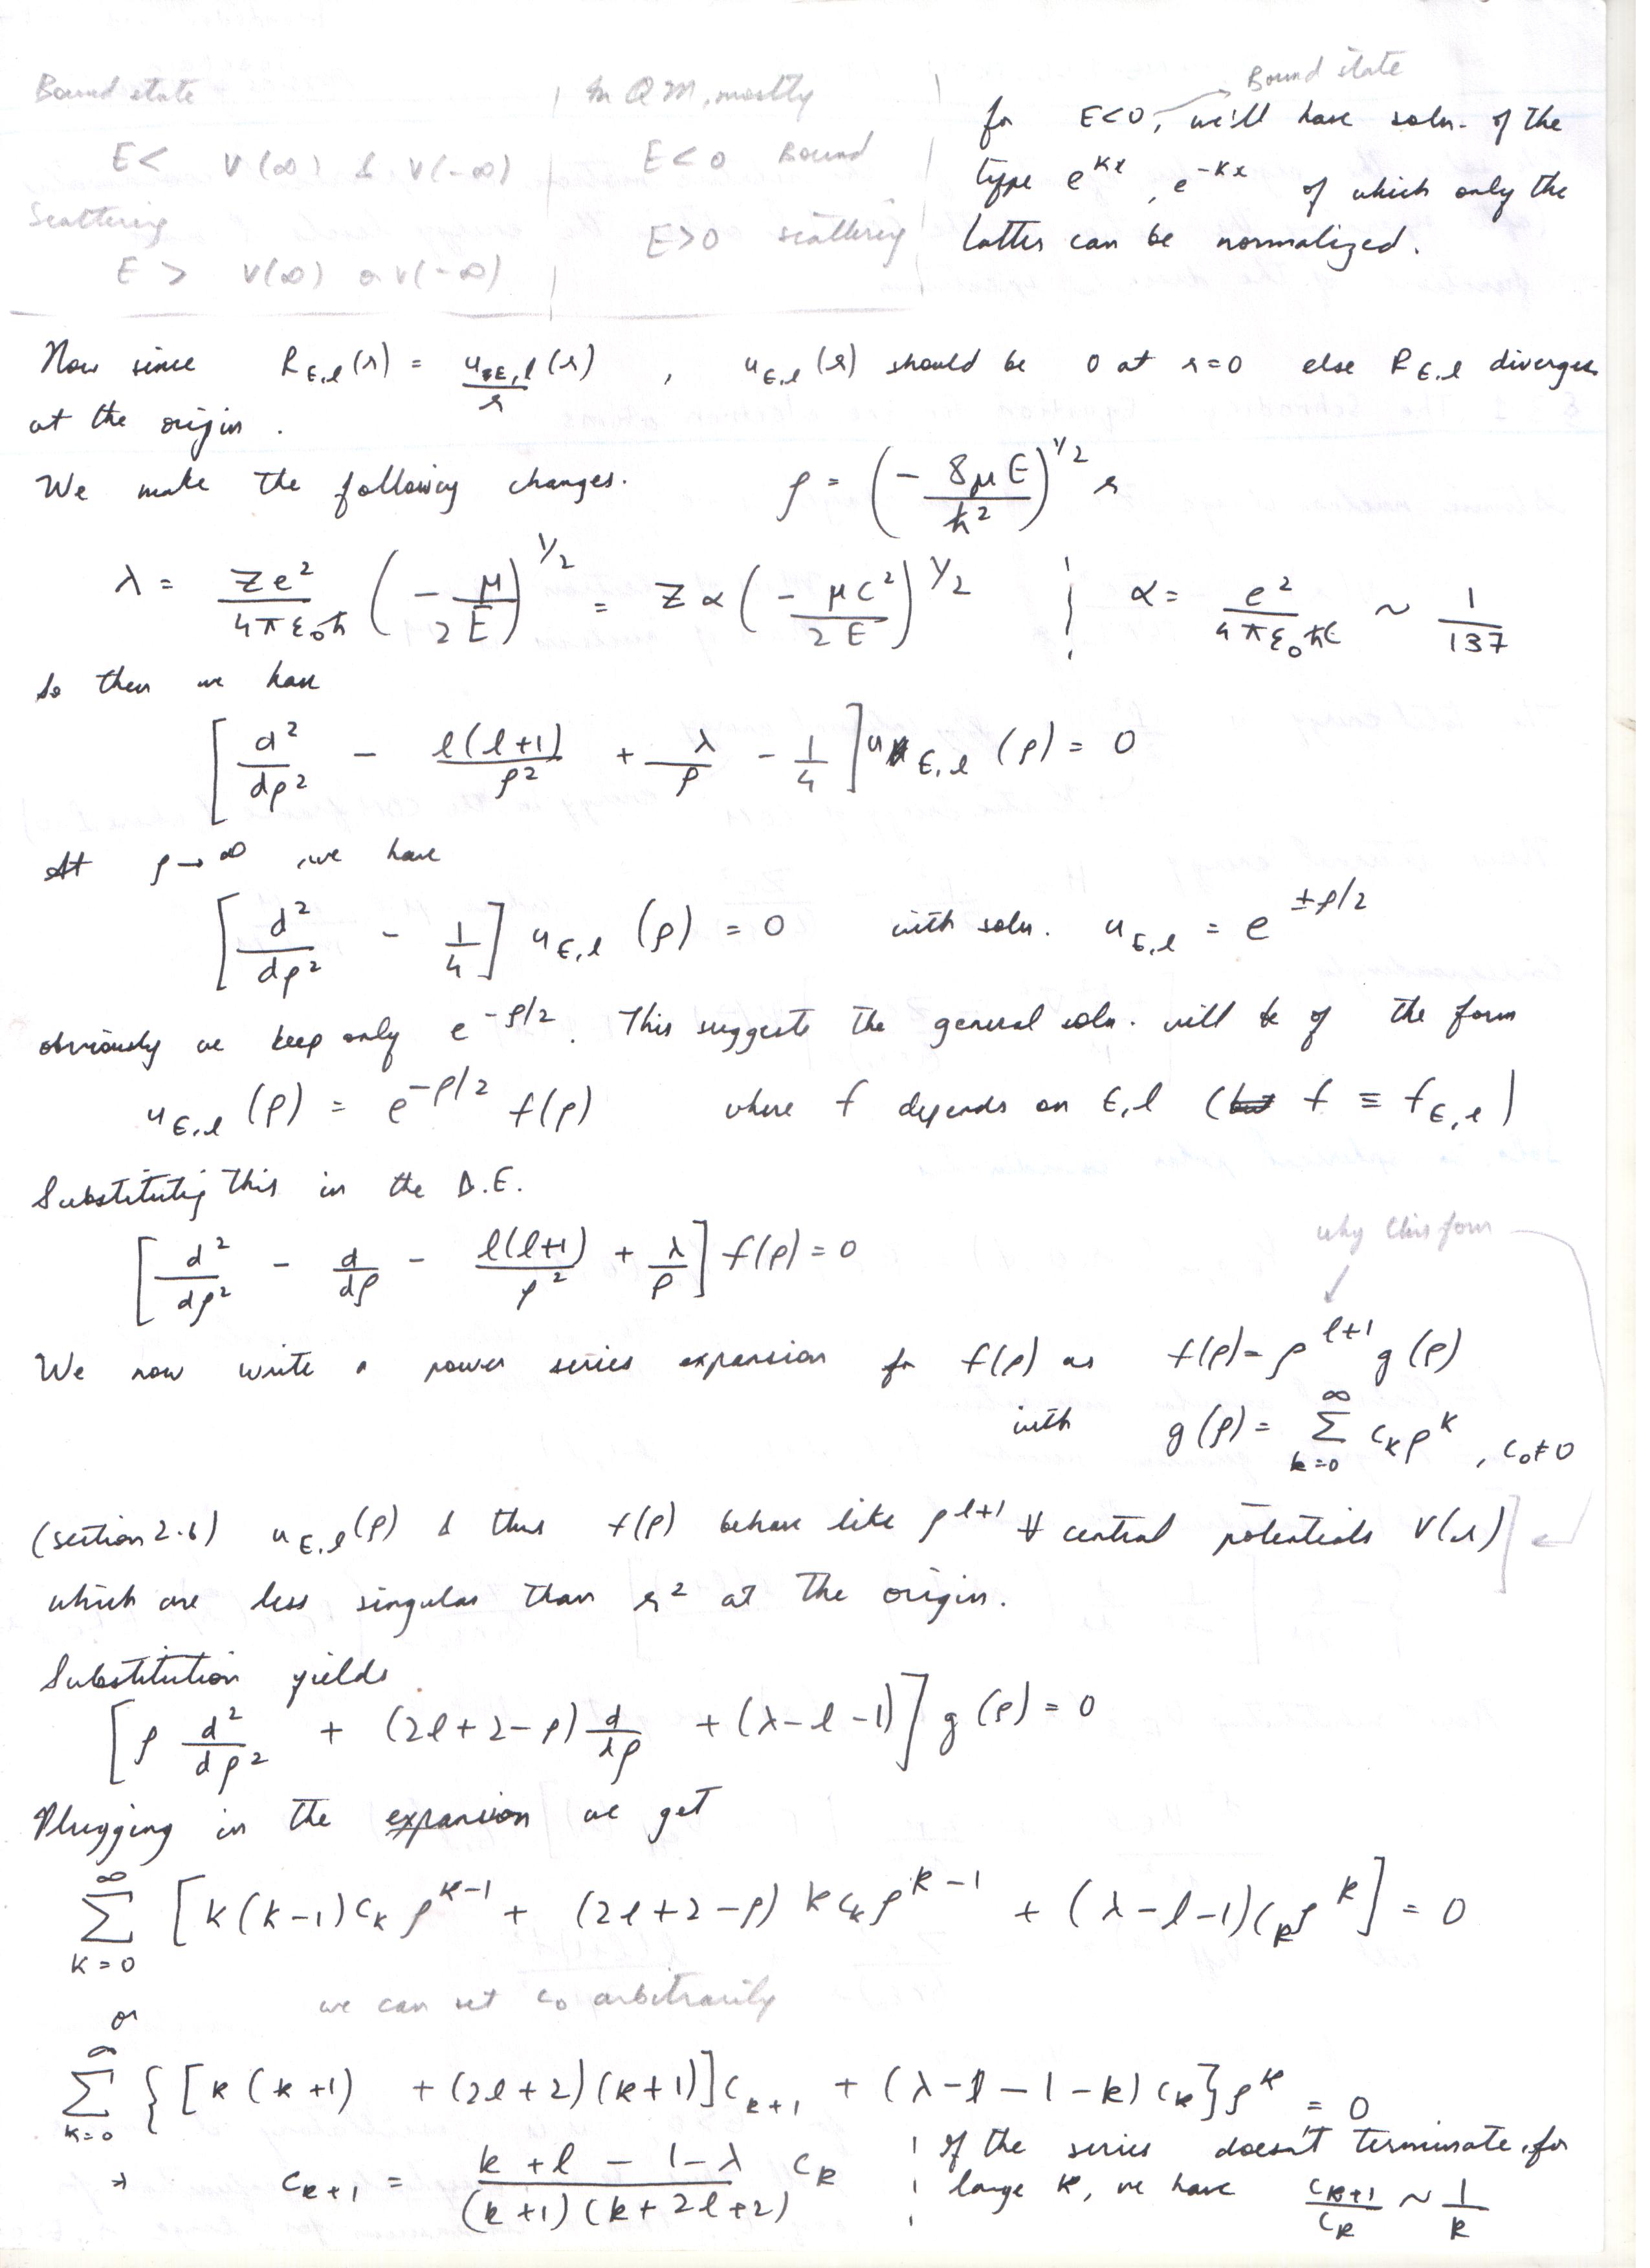 Bound state
E < V(∞) & V(-∞)
Scattering
E > V(∞) or V(-∞)
In QM, mostly
E < 0 Bound
E > 0 scattering
Bound state
for E<0, we'll have soln. of the
type e^{κx}, e^{-κx} of which only the
latter can be normalized.
Now since R_{E,l}(r) = u_{E,l}(r)/r , u_{E,l}(r) should be 0 at r=0 else R_{E,l} diverges
at the origin.
We make the following changes. ρ = (- 8μE/ħ²)^{1/2} r
λ = Ze²/4πε₀ħ (- μ/2E)^{1/2} = Zα (- μc²/2E)^{1/2} ; α = e²/4πε₀ħc ~ 1/137
So then we have
[d²/dρ² - l(l+1)/ρ² + λ/ρ - 1/4] u_{E,l}(ρ) = 0
At ρ→∞, we have
[d²/dρ² - 1/4] u_{E,l}(ρ) = 0 with soln. u_{E,l} = e^{±ρ/2}
obviously we keep only e^{-ρ/2}. This suggests the general soln. will be of the form
u_{E,l}(ρ) = e^{-ρ/2} f(ρ) where f depends on E,l (but f ≡ f_{E,l})
Substituting this in the D.E.
[d²/dρ² - d/dρ - l(l+1)/ρ² + λ/ρ] f(ρ) = 0
why this form
We now write a power series expansion for f(ρ) as f(ρ) = ρ^{l+1} g(ρ)
with g(ρ) = Σ_{k=0}^{∞} c_k ρ^k , c₀≠0
(section 2.6) u_{E,l}(ρ) & thus f(ρ) behave like ρ^{l+1} ∀ central potentials V(r)
which are less singular than r² at the origin.
Substitution yields
[ρ d²/dρ² + (2l+2-ρ) d/dρ + (λ-l-1)] g(ρ) = 0
Plugging in the expansion we get
Σ_{k=0}^{∞} [k(k-1)c_k ρ^{k-1} + (2l+2-ρ) k c_k ρ^{k-1} + (λ-l-1)c_k ρ^k] = 0
we can set c₀ arbitrarily
or
Σ_{k=0}^{∞} {[k(k+1) + (2l+2)(k+1)]c_{k+1} + (λ-l-1-k)c_k}ρ^k = 0
→ c_{k+1} = (k+l-1-λ)/((k+1)(k+2l+2)) c_k
If the series doesn't terminate, for
large k, we have c_{k+1}/c_k ~ 1/k